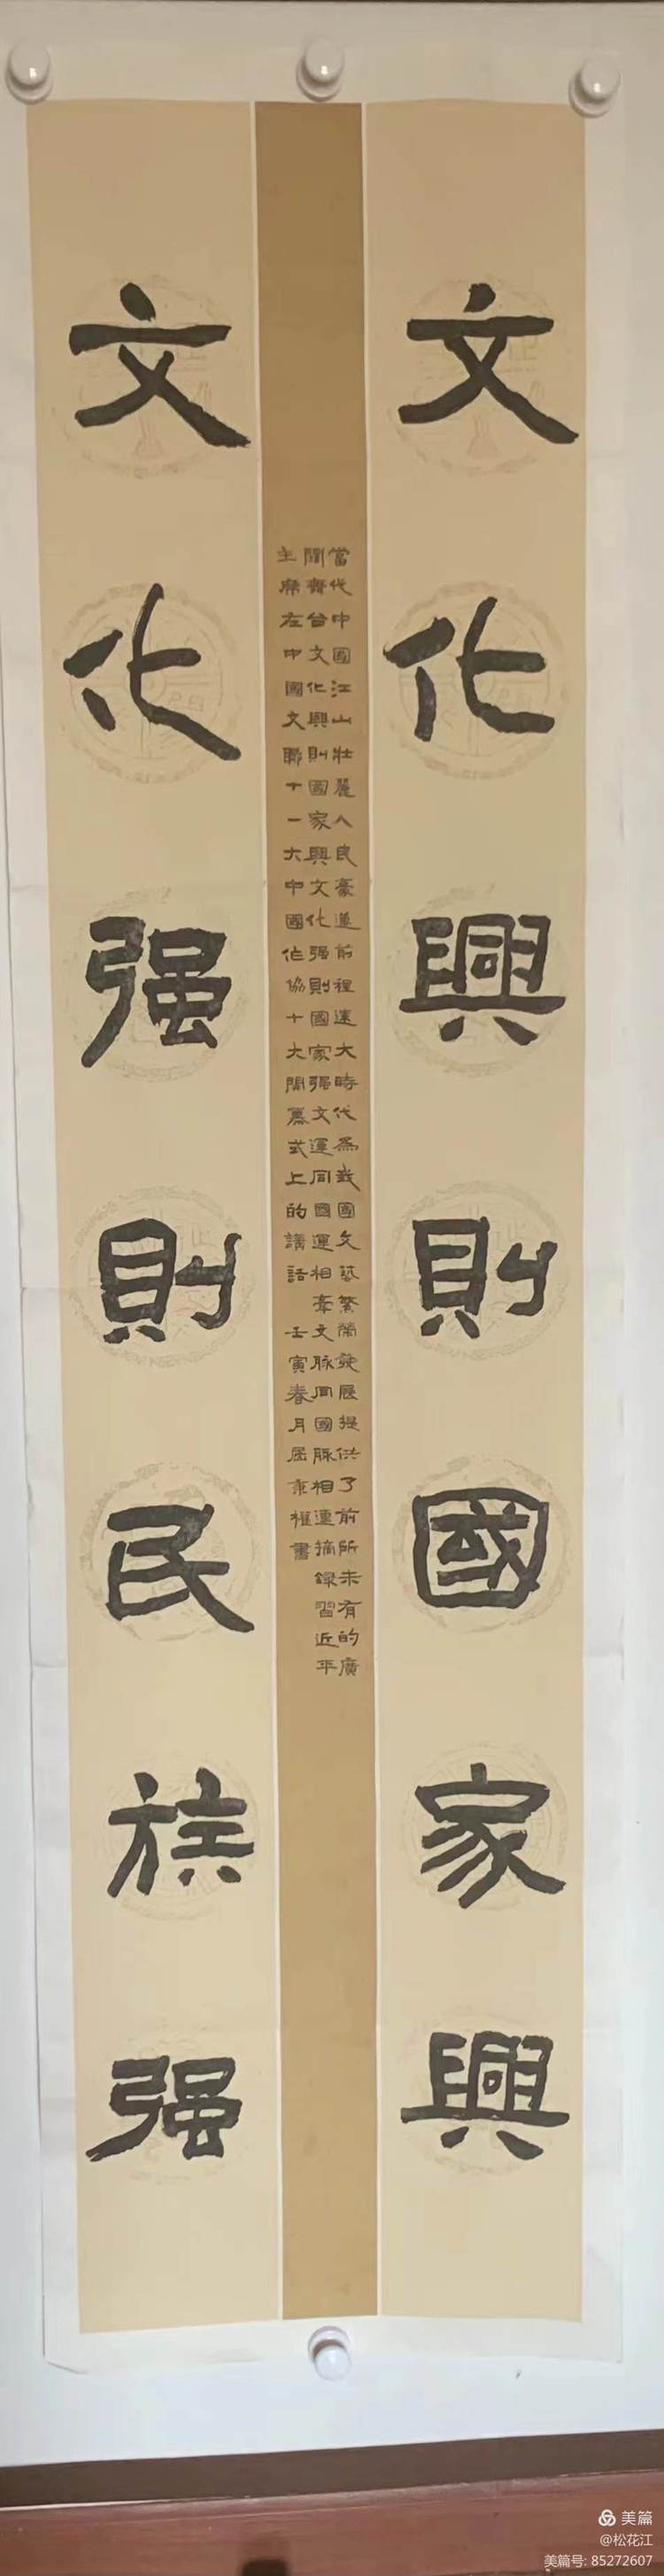 文化興則國家興
當代中國江山壯麗人民豪邁前程遠大時代為我國文藝繁榮發展提供了前所未有的廣
闊舞台文化興則國家興文化强則國家强文運同國運相牽文脉同國脉相連摘録習近平
主席在中國文聯十一大中國作協十大開幕式上的講話 壬寅春月秉權書
文化强則民族强
美篇
@松花江
美篇号: 85272607